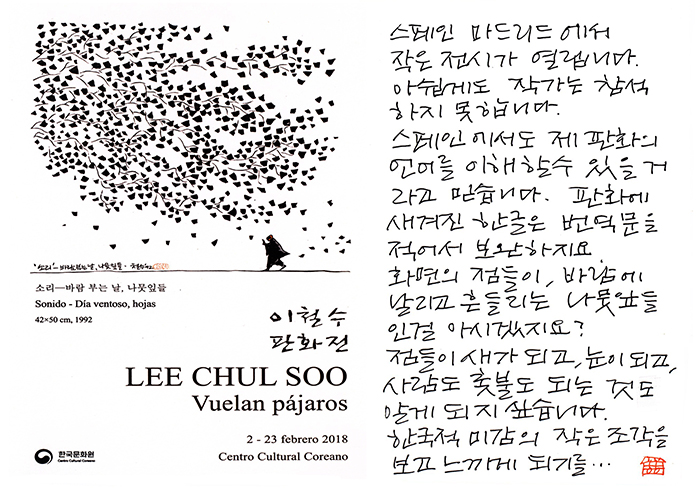 "소리"-바람부는 날, 나뭇잎들 ·
소리—바람 부는 날, 나뭇잎들
Sonido - Día ventoso, hojas
42×50 cm, 1992
이철수
판화전
LEE CHUL SOO
Vuelan pájaros
2 - 23 febrero 2018
Centro Cultural Coreano
한국문화원
Centro Cultural Coreano
스페인 마드리드에서
작은 전시가 열립니다.
아쉽게도 작가는 참석
하지 못합니다.
스페인에서도 제 판화의
언어를 이해할수 있을거
라고 믿습니다. 판화에
새겨진 한글은 번역문을
적어서 보완하지요
화면의 점들이, 바람에
날리고 흔들리는 나뭇잎들
인걸 아시겠지요?
점들이 새가 되고, 눈이 되고,
사람도 촛불도 되는 것도
알게 되지 싶습니다.
한국적 미감의 작은 조각을
보고 느끼게 되기를…